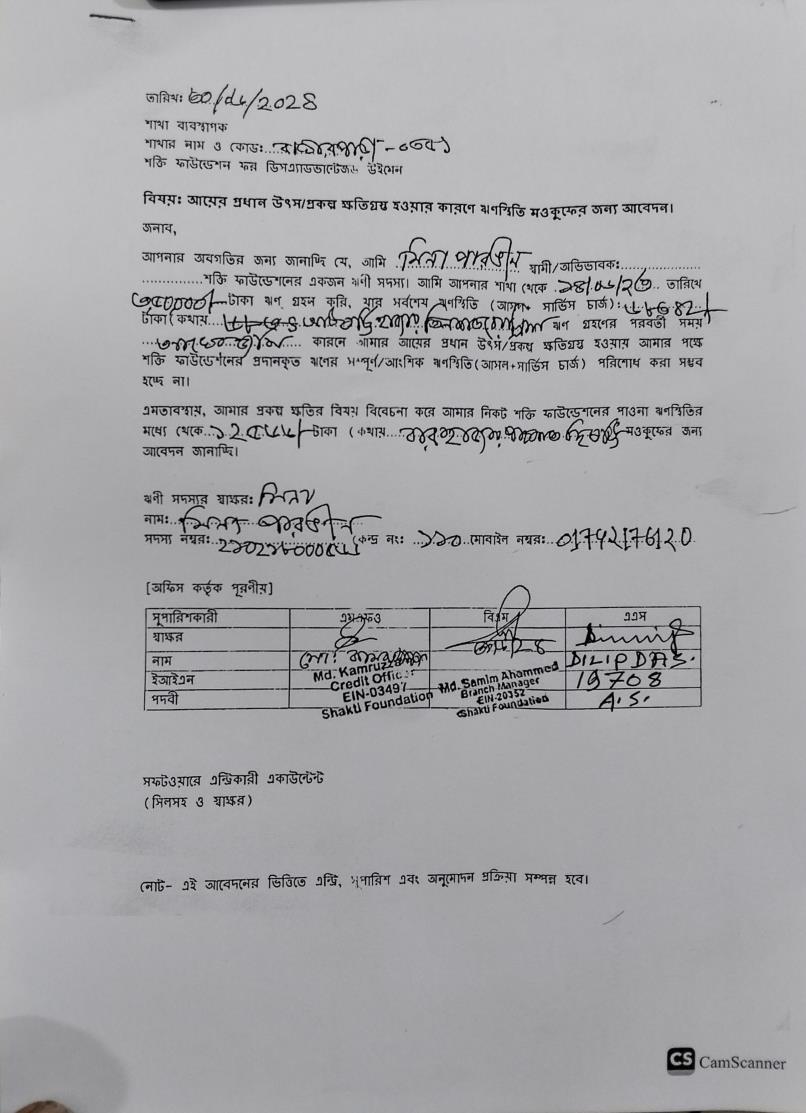 তারিখঃ
শাখা ব্যবস্থাপক
শাখার নাম ও কোডঃ
শক্তি ফাউন্ডেশন ফর ডিসএ্যাডভান্টেজড উইমেন
বিষয়ঃ আয়ের প্রধান উৎস/প্রকল্প ক্ষতিগ্রস্ত হওয়ার কারণে ঋণস্থিতি মওকুফের জন্য আবেদন।
জনাব,
আপনার অবগতির জন্য জানাচ্ছি যে, আমি মিনা পারভীন স্বামী/অভিভাবক:....................
...............শক্তি ফাউন্ডেশনের একজন ঋণী সদস্য। আমি আপনার শাখা থেকে তারিখে
টাকা ঋণ গ্রহন করি, যার সর্বশেষ ঋণস্থিতি (আসল+ সার্ভিস চার্জ):
টাকা (কথায় ঋণ গ্রহণের পরবর্তী সময়
কারনে আমার আয়ের প্রধান উৎস/প্রকল্প ক্ষতিগ্রস্ত হওয়ায় আমার পক্ষে
শক্তি ফাউন্ডেশনের প্রদানকৃত ঋণের সম্পূর্ণ/আংশিক ঋণস্থিতি(আসল+সার্ভিস চার্জ) পরিশোধ করা সম্ভব
হচ্ছে না।
এমতাবস্থায়, আমার প্রকল্প ক্ষতির বিষয় বিবেচনা করে আমার নিকট শক্তি ফাউন্ডেশনের পাওনা ঋণস্থিতির
মধ্যে থেকে টাকা (কথায় মওকুফের জন্য
আবেদন জানাচ্ছি।
ঋণী সদস্যর স্বাক্ষরঃ মিনা
নাম: মিনা পারভীন
সদস্য নম্বরঃ কেন্দ্র নং: ১১০ মোবাইল নম্বরঃ 01742176120
[অফিস কর্তৃক পূরণীয়]
সুপারিশকারী এফএফও বিএম এএস
স্বাক্ষর
নাম DILIP DAS.
Md. Kamruzz
Credit Officer
EIN-03497
Shakti Foundation
Md. Samim Ahammed
Branch Manager
EIN-20352
Shakti Foundation
ইআইএন 19708
পদবী A.S.
সফটওয়ারে এন্ট্রিকারী একাউন্টেন্ট
(সিলসহ ও স্বাক্ষর)
নোট- এই আবেদনের ভিত্তিতে এন্ট্রি, সুপারিশ এবং অনুমোদন প্রক্রিয়া সম্পন্ন হবে।
CS CamScanner